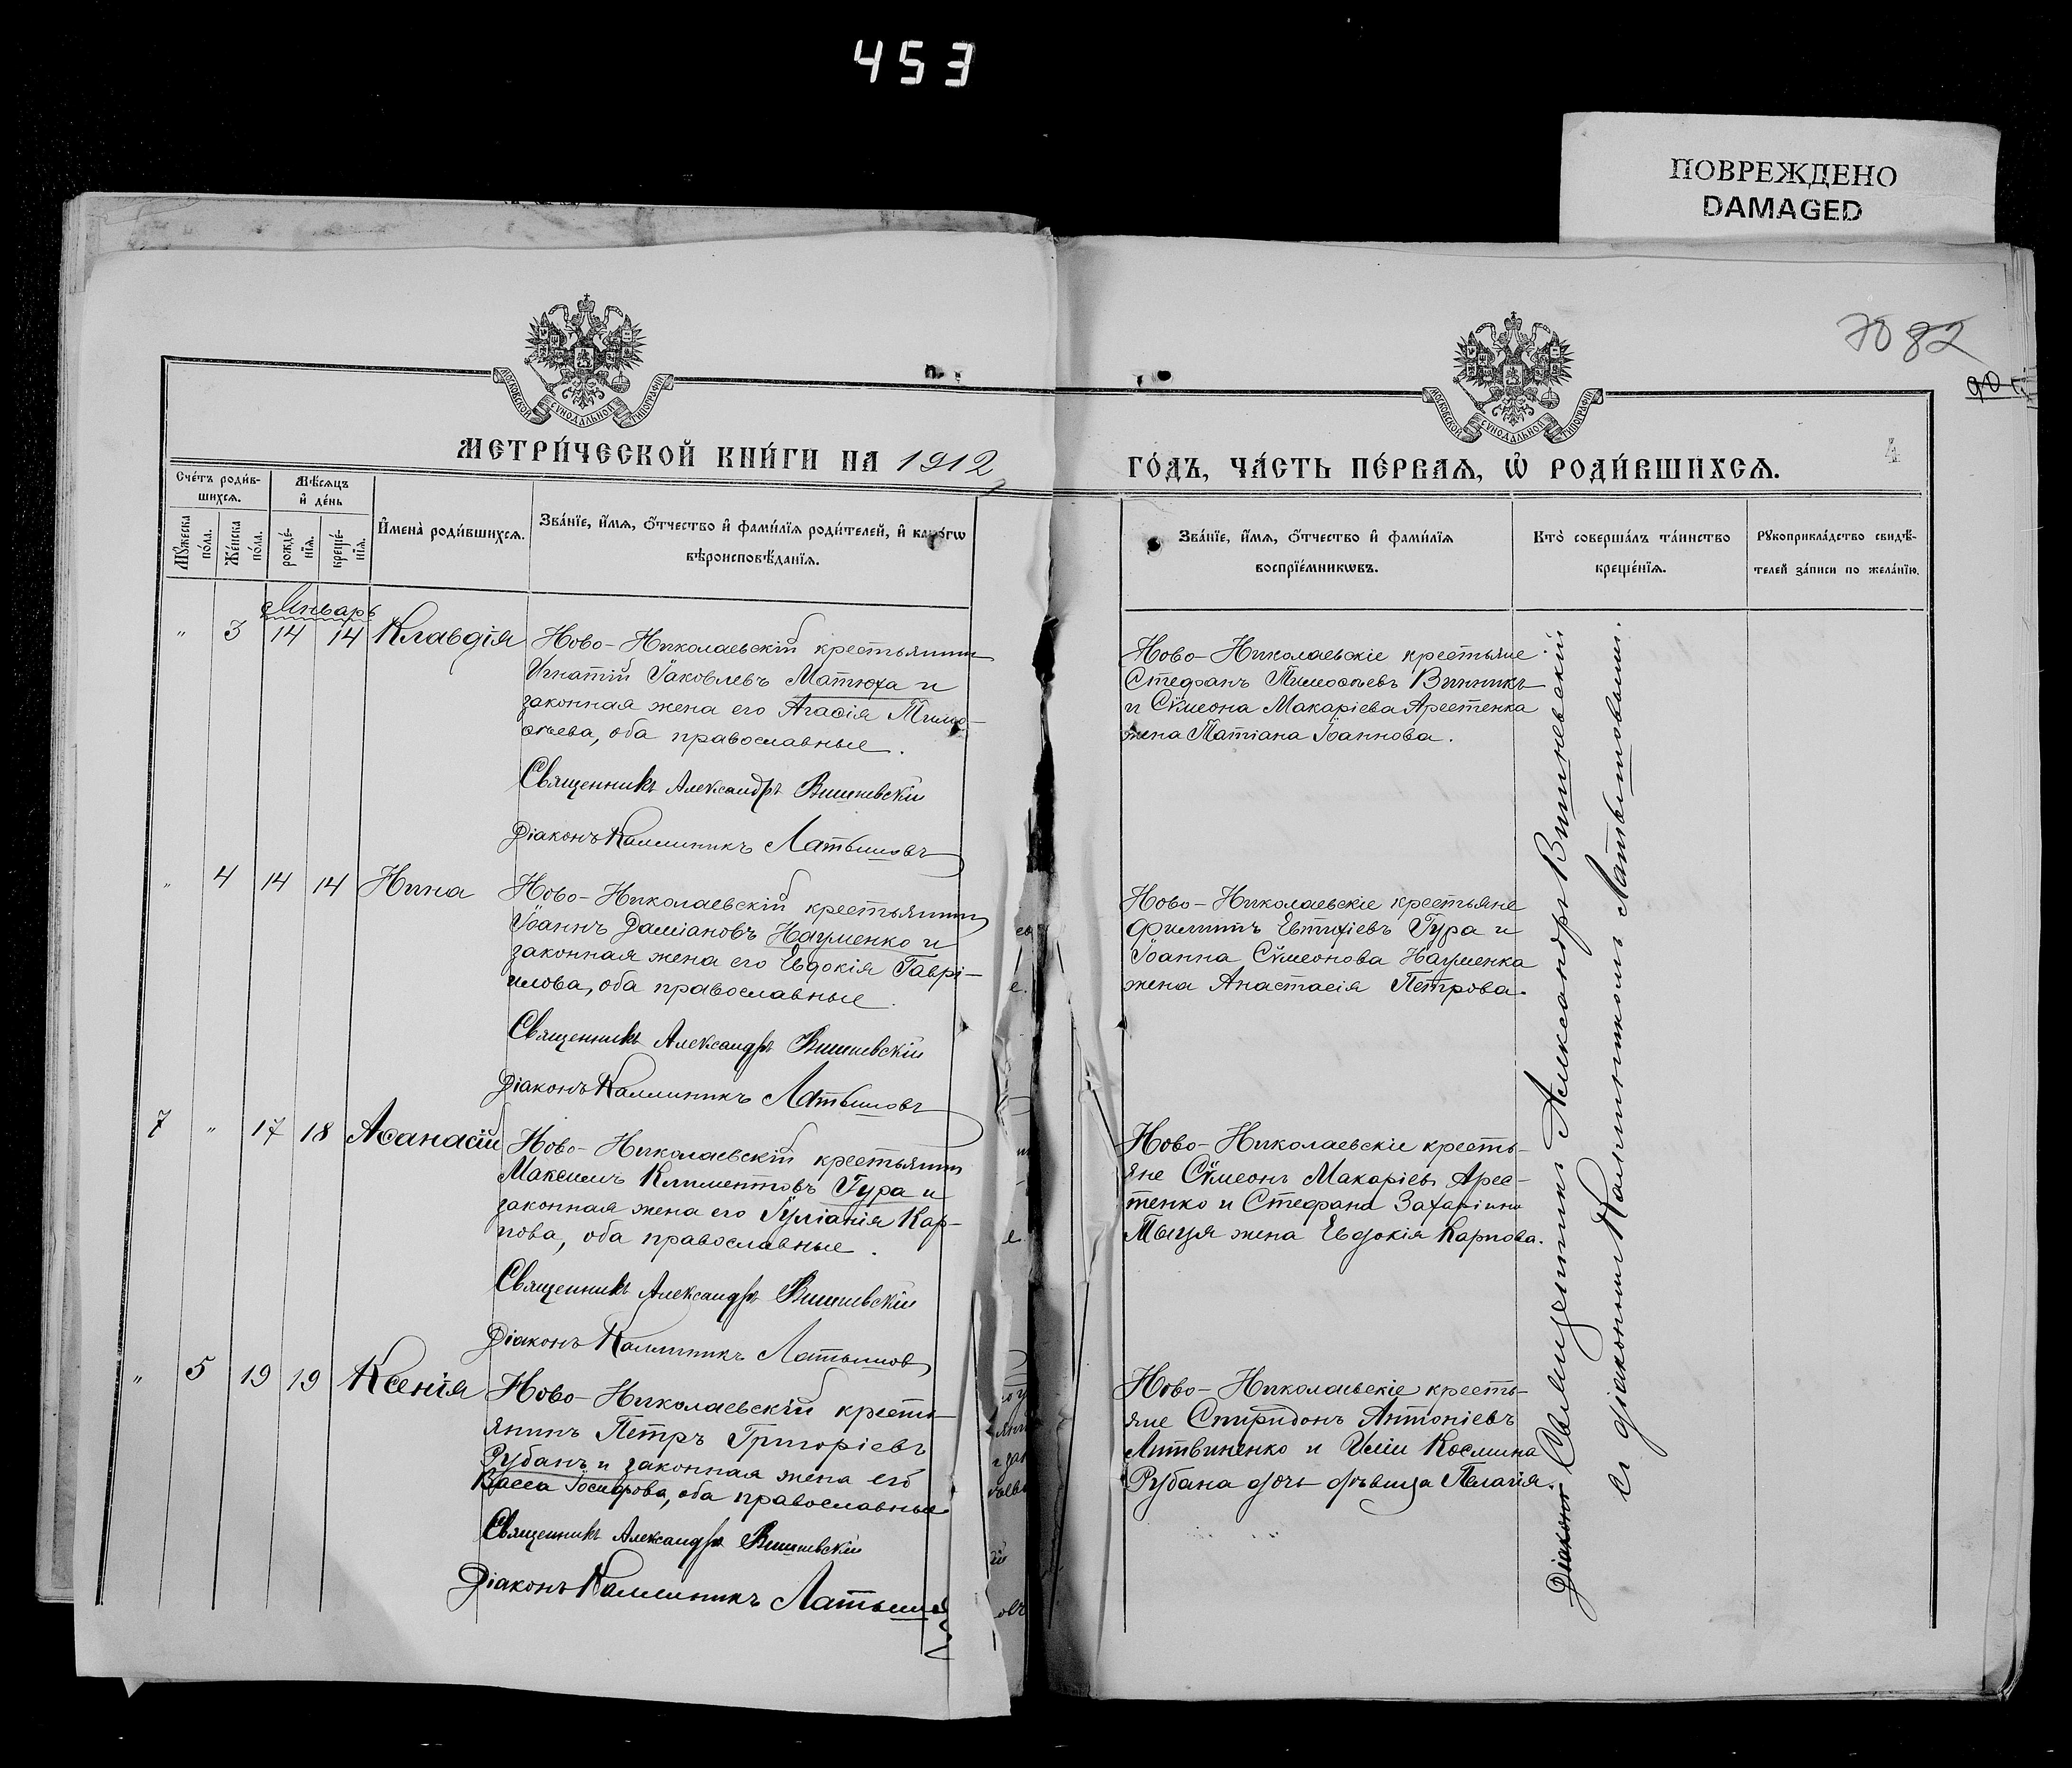 453
ПОВРЕЖДЕНО
DAMAGED
7082
90
4
МОСКОВСКОЙ СѴНОДАЛЬНОЙ ТИПОГРАФІИ
МОСКОВСКОЙ СѴНОДАЛЬНОЙ ТИПОГРАФІИ
МЕТРИ́ЧЕСКОЙ КНИ́ГИ НА 1912
ГО́ДЪ, ЧА́СТЬ ПЕ́РВАѦ, Ѡ҆ РОДИ́ВШИХСѦ.
Сче́тъ роди́в-
шихсѧ.
Мꙋ́жеска по́ла.
Же́нска по́ла.
Мѣ́сѧцъ
и҆ де́нь
рожде́-нїѧ.
креще́-нїѧ.
И҆мена̀ роди́вшихсѧ.
Зва́нїе, и҆́мѧ, ѻ҆́тчество и҆ фами́лїѧ роди́телей, и҆ како́гѡ
вѣроисповѣ́данїѧ.
Зва́нїе, и҆́мѧ, ѻ҆́тчество и҆ фами́лїѧ
воспрїе́мникѡвъ.
Кто̀ соверша́лъ та́инство
креще́нїѧ.
Рꙋкоприкла́дство свидѣ́-
телей за́писи по жела́нїю.
Январь
" 3 14 14 Клавдія
Ново-Николаевскій крестьянинъ
Игнатій Іаковлевъ Матюха и
законная жена его Агаѳія Тимо-
ѳеева, оба православные.
Священникъ Александръ Вишневскій
Діаконъ Каллиникъ Латышовъ
Ново-Николаевскіе крестьяне
Стефанъ Тимоѳеевъ Винникъ
и Сѷмеона Макаріева Арестенка
жена Татіана Іоаннова.
" 4 14 14 Нина
Ново-Николаевскій крестьянинъ
Іоаннъ Даміановъ Науменко и
законная жена его Евдокія Гаврі-
илова, оба православные.
Священникъ Александръ Вишневскій
Діаконъ Каллиникъ Латышовъ
Ново-Николаевскіе крестьяне
Филиппъ Евтихіевъ Гура и
Іоанна Сѷмеонова Науменка
жена Анастасія Петрова.
7 " 17 18 Аѳанасій
Ново-Николаевскій крестьянинъ
Максимъ Климентовъ Гура и
законная жена его Іуліанія Кар-
пова, оба православные.
Священникъ Александръ Вишневскій
Діаконъ Каллиникъ Латышовъ
Ново-Николаевскіе кресть-
яне Сѷмеонъ Макаріевъ Арес-
тенко и Стефана Захаріина
жена Евдокія Карпова.
" 5 19 19 Ксенія
Ново-Николаевскій кресть-
янинъ Петръ Григоріевъ
Рубанъ и законная жена его
Васса Іосифова, оба православные
Священникъ Александръ Вишневскій
Діаконъ Каллиникъ Латышов
Ново-Николаевскіе кресть-
яне Спиридонъ Антоніевъ
Литвиненко и Космина
Рубана дочь дѣвица Пелагія.
Діаконъ Священникъ Александръ Вишневскій
съ діакономъ Каллиникомъ Латышовымъ.